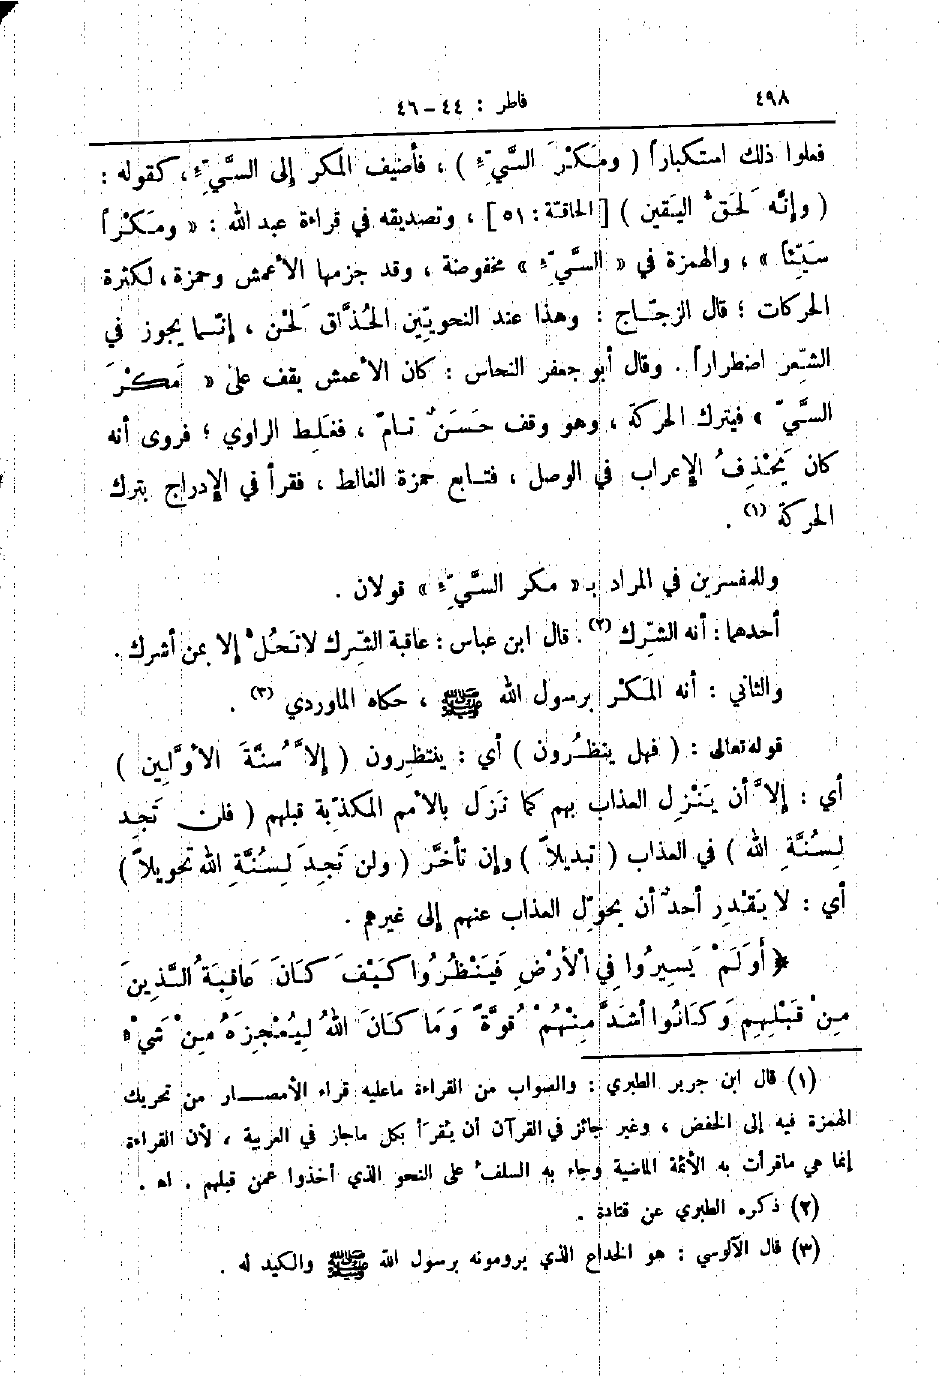 ٤٩٨
فاطر : ٤٤ – ٤٦
فعلوا ذلك استكباراً ( ومَكْرَ السَّيِّءِ ) ، فأضيف المكر إلى السَّيِّءِ ، كقوله :
( وإنَّه لَحَقُّ اليَقين ) [ الحاقة : ٥١ ] ، وتصديقه في قراءة عبد الله : « ومَكْراً
سَيِّئاً » ، والهمزة في « السَّيِّءِ » مخفوضة ، وقد جزمها الأعمش وحمزة ، لكثرة
الحركات ؛ قال الزجّاج : وهذا عند النحويّين الحُذَّاق لَحْن ، إنّما يجوز في
الشِّعر اضطراراً . وقال أبو جعفر النحاس : كان الأعمش يقف على « مَكْرَ
السَّيِّ » فيترك الحركة ، وهو وقف حَسَنٌ تامّ ، فغَلِط الراوي ؛ فروى أنه
كان يَحْذِفُ الإعراب في الوصل ، فتابع حمزة الغالط ، فقرأ في الإدراج بترك
الحركة (١) .
وللمفسرين في المراد بـ « مكر السَّيِّءِ » قولان .
أحدهما : أنه الشِّرك (٢) . قال ابن عباس : عاقبة الشِّرك لا تَحُلُّ إلا بمن أشرك .
والثاني : أنه المَكْر برسول الله ﷺ ، حكاه الماوردي (٣) .
قوله تعالى : ( فهل ينظُرون ) أي : ينتظِرون ( إلاَّ سُنَّةَ الأوَّلِين )
أي : إلاَّ أن يَنْزِل العذاب بهم كما نَزَل بالأمم المكذِّبة قبلهم ( فلن تَجِد
لِسُنَّةِ الله ) في العذاب ( تبديلاً ) وإن تأخَّر ( ولن تَجِدَ لِسُنَّةِ الله تحويلاً )
أي : لا يَقْدِر أحدٌ أن يحوِّل العذاب عنهم إلى غيرهم .
﴿ أَوَلَمْ يَسِيرُوا فِي الْأَرْضِ فَيَنْظُرُوا كَيْفَ كَانَ عَاقِبَةُ الَّذِينَ
مِنْ قَبْلِهِمْ وَكَانُوا أَشَدَّ مِنْهُمْ قُوَّةً وَمَا كَانَ اللهُ لِيُعْجِزَهُ مِنْ شَيْءٍ
(١) قال ابن جرير الطبري : والصواب من القراءة ماعليه قراء الأمصـار من تحريك
الهمزة فيه إلى الخفض ، وغير جائز في القرآن أن يُقرَأ بكل ماجاز في العربية ، لأن القراءة
إنما هي ماقرأت به الأئمة الماضية وجاء به السلف على النحو الذي أخذوا عمن قبلهم . اه .
(٢) ذكره الطبري عن قتادة .
(٣) قال الآلوسي : هو الخداع الذي يرومونه برسول الله ﷺ والكيد له .